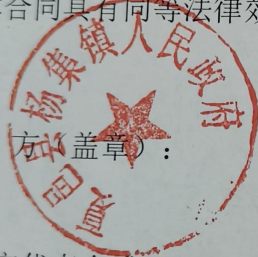 合同具有同等法律效
夏邑县杨集镇人民政府
方（盖章）：